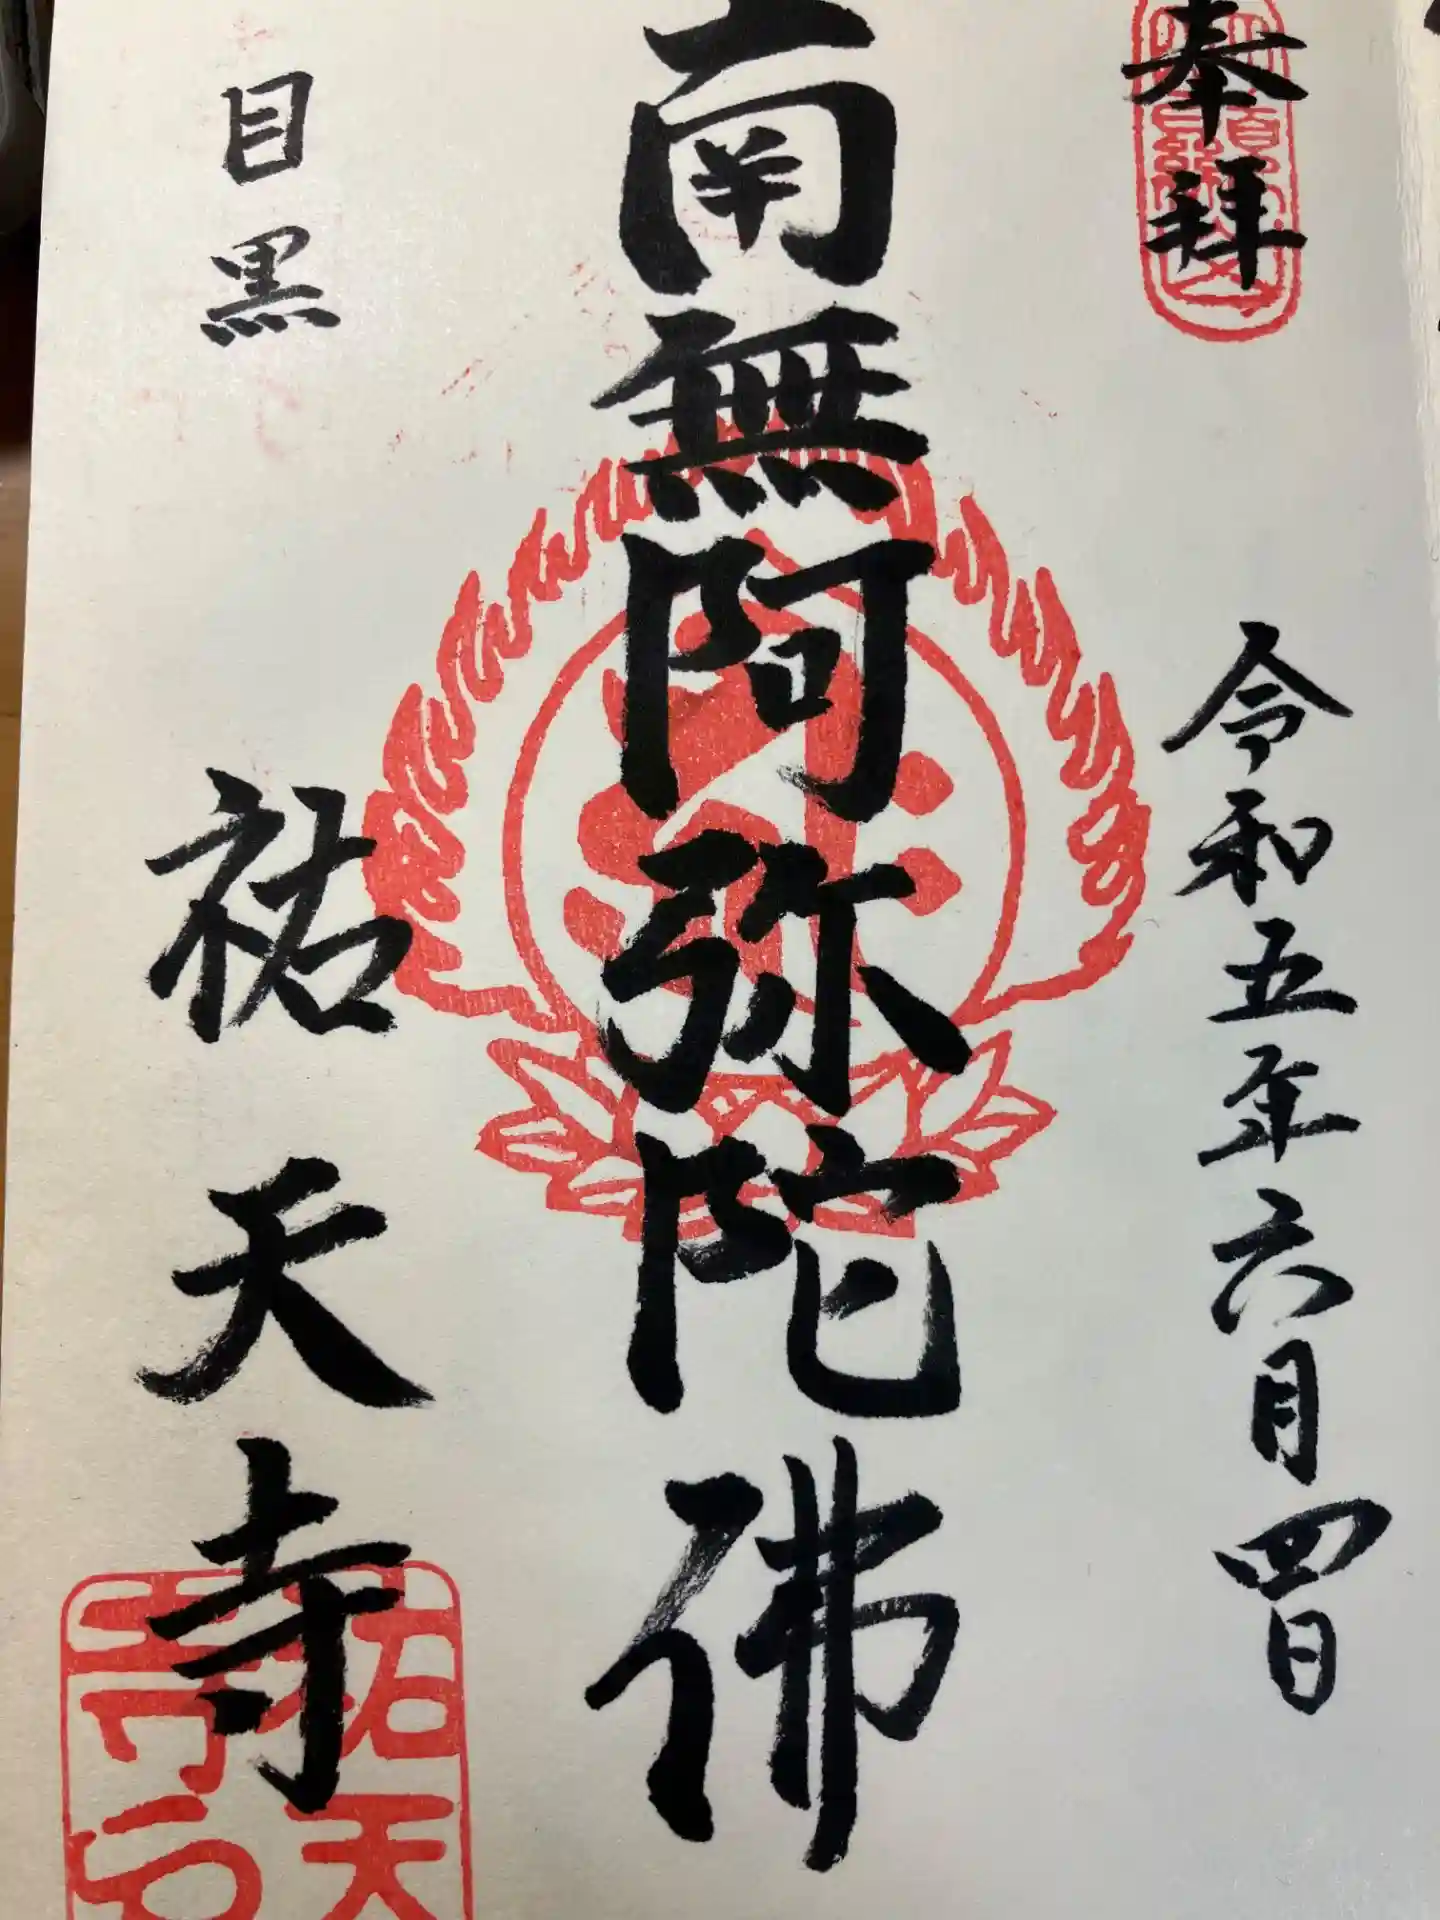 奉拜
令和五年六月四日
南無阿弥陀佛
目黒
祐天寺